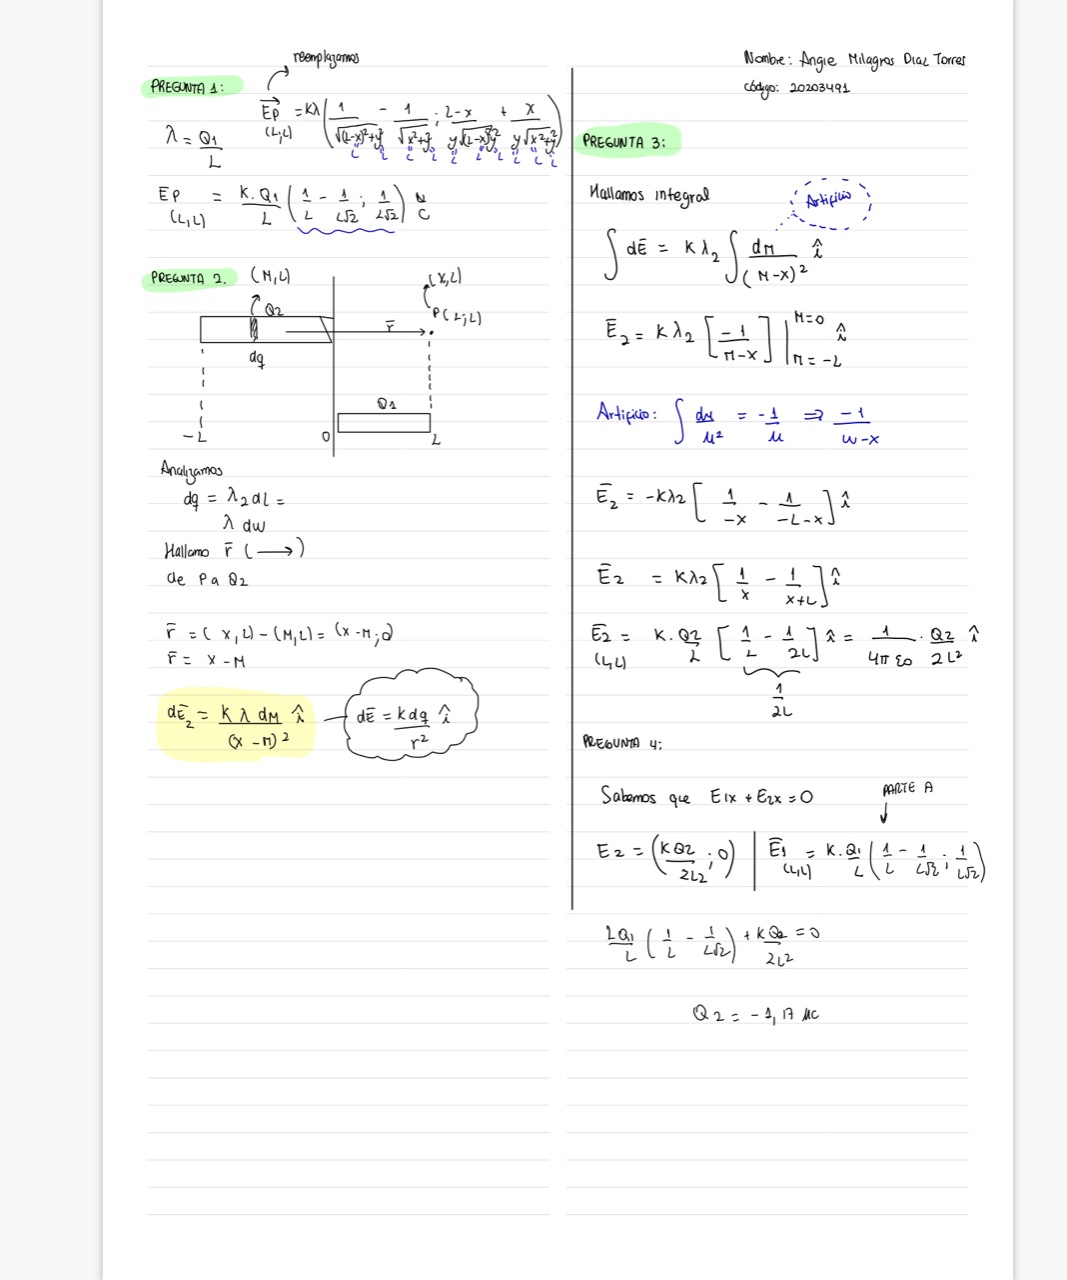 Nombre: Angie Milagros Diaz Torres
código: 20203491
reemplazamos
PREGUNTA 1:
λ = Q1/L
Ep (L;L) = Kλ ( 1/√((L-x)²+y²) - 1/√(x²+y²) ; L-x/y√((L-x)²+y²) + x/y√(x²+y²) )
L L L L L L L L L L
EP (L,L) = K.Q1/L ( 1/L - 1/L√2 ; 1/L√2 ) N/C
PREGUNTA 2.
(M,L)
Q2
dq
r̄
(X,L)
P(L;L)
Q1
-L 0 L
Analizamos
dq = λ2dL =
λ dw
Hallamo r̄ (⟶)
de P a Q2
r̄ = (x,L)-(M,L) = (x-M;0)
r̄ = x-M
dĒ2 = K λ dM/(x-M)² î
dĒ = kdq/r² î
PREGUNTA 3:
Hallamos integral
Artificio
∫ dĒ = K λ2 ∫ dM/(M-X)² î
Ē2 = K λ2 [ -1/M-X ] | M=0 M=-L î
Artificio: ∫ du/u² = -1/u ⇒ -1/w-x
Ē2 = -Kλ2 [ 1/-x - 1/-L-x ] î
Ē2 = Kλ2 [ 1/x - 1/x+L ] î
Ē2 (L;L) = K.Q2/L [ 1/L - 1/2L ] î = 1/4πε0 . Q2/2L² î
1/2L
PREGUNTA 4:
Sabemos que E1x + E2x = 0
PARTE A
E2 = ( KQ2/2L2 ; 0 ) | Ē1 (L,L) = K.Q1/L ( 1/L - 1/L√2 ; 1/L√2 )
LQ1/L ( 1/L - 1/L√2 ) + KQ2/2L² = 0
Q2 = -1,17 μC